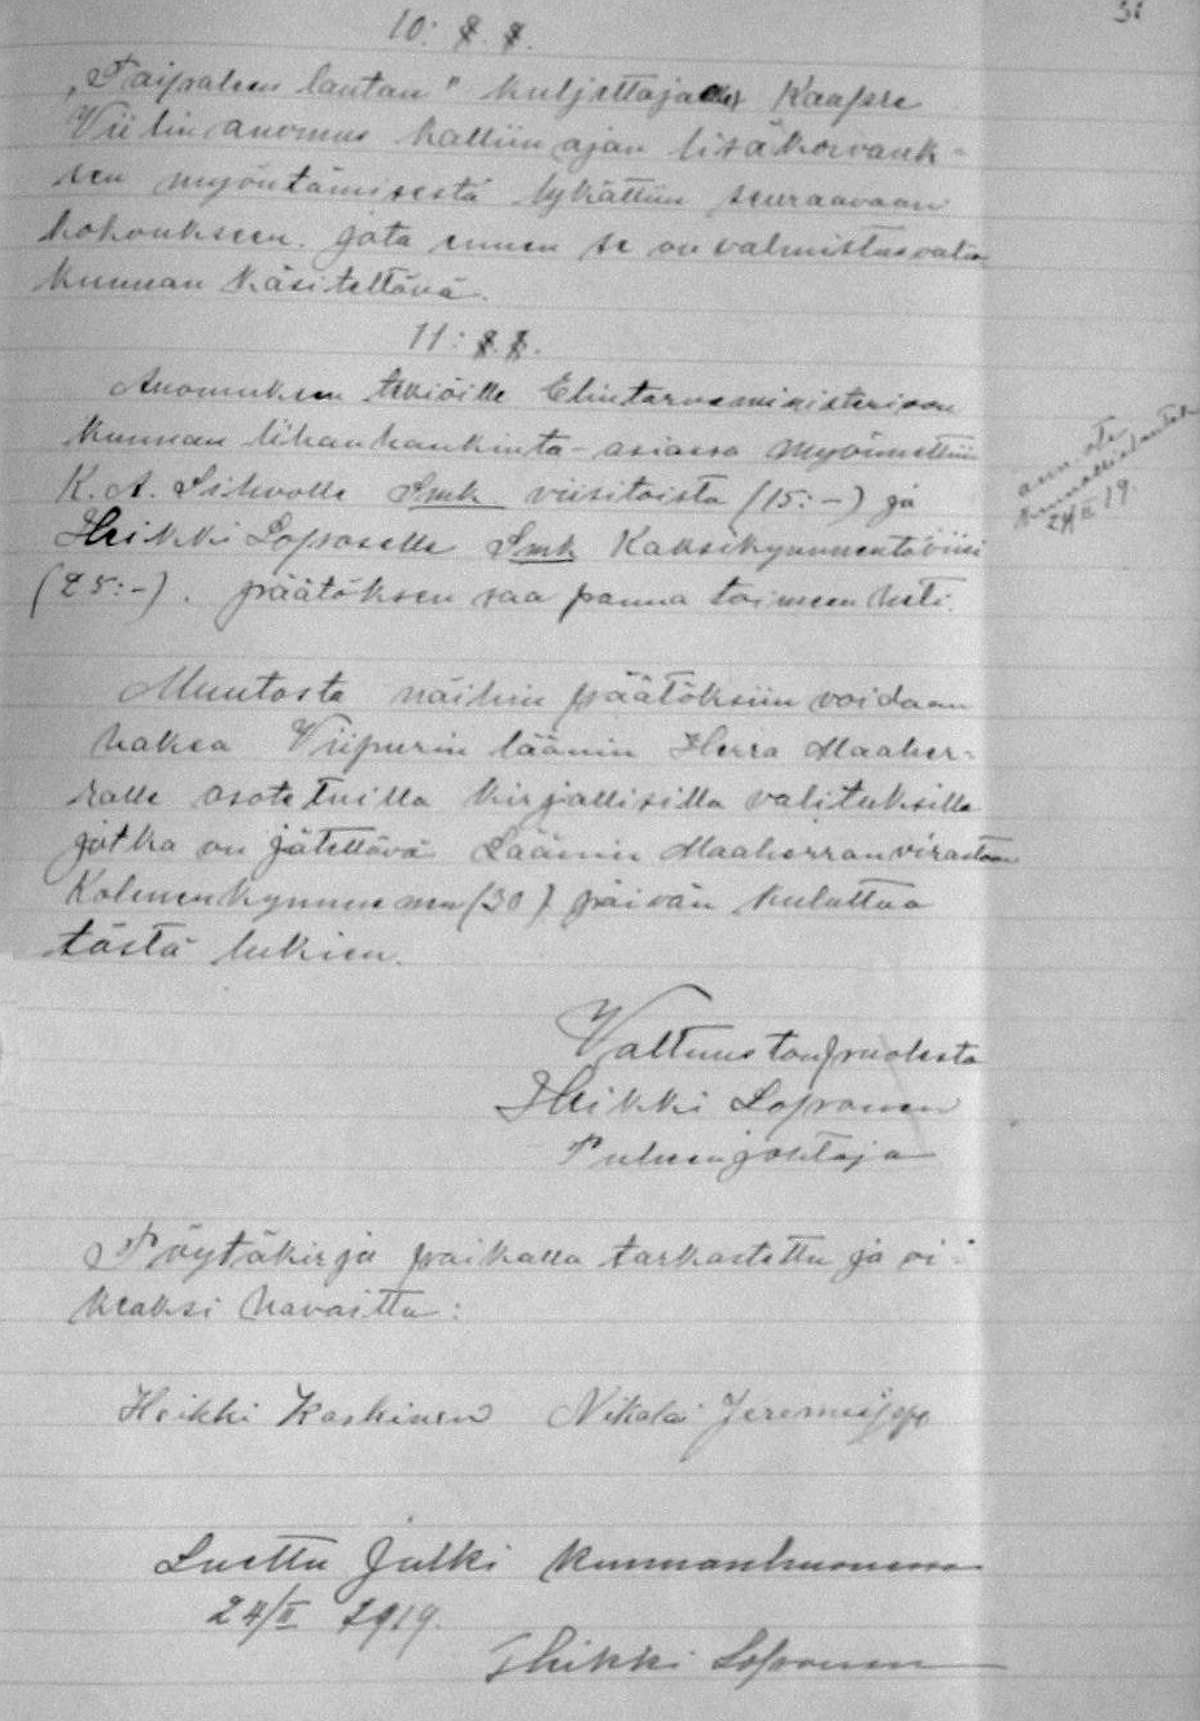 10: §. §.
„Taipaleen lautan" kuljettajan Kaapre
Viilin anomus kalliin ajan lisäkorvauk-
sen myöntämisestä lykättiin seuraavaan
kokoukseen. jota ennen se on valmistusvalio
kunnan käsiteltävä.
11: §. §.
Anomuksen tekiöille Elintarveministerioon
kunnan lihanhankinta-asiassa myönnettiin
K. A. Sihvolle Smk viisitoista (15:-) ja
Heikki Loposelle Smk Kaksikymmentäviisi
(25:-). päätöksen saa panna toimeen heti.
ann. ote
kunnallislautak
24/II 19.
Muutosta näihin päätöksiin voidaan
hakea Viipurin läänin Herra Maaher-
ralle osotetuilla kirjallisilla valituksilla
jotka on jätettävä Läänin Maaherranvirastoon
Kolmenkymmenen (30) päivän kuluttua
tästä lukien.
Valtuuston puolesta
Heikki Loponen
Puheenjohtaja
Pöytäkirja paikalla tarkastettu ja oi-
keaksi havaittu:
Heikki Koskinen Nikolai Jeremejeff
Luettu julki kunnanhuoneessa
24/II 1919.
Heikki Loponen